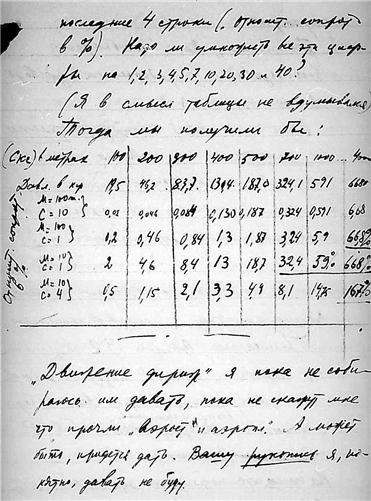 последние 4 строки (. относит. сопрот
в %). Надо ли умножить все эти циф-
ры на 1, 2, 3, 4, 5, 7, 10, 20, 30 и 40?
(Я в смысл таблицы не вдумывался)
Тогда мы получили бы:
в метрах 100 200 300 400 500 700 1000 ... 4000
Давл. в кгр 19,5 46,2 83,7 130,4 187,0 324,1 591 6680
M=100 C=10 0,02 0,046 0,084 0,130 0,187 0,324 0,591 6,68
M=100 C=1 0,2 0,46 0,84 1,3 1,87 3,24 5,9 66,8%
M=10 C=1 2 4,6 8,4 13 18,7 32,4 59% 668%
M=10 C=4 0,5 1,15 2,1 3,3 4,9 8,1 14,75 167%
Относит. сопрот в %
"Движение дирижр" я пока не соби-
раюсь им давать, пока не скажут мне
что прочли "Аэрост" и аэропл." А может
быть, придется дать. Вашу рукопись я, по-
нятно, давать не буду.